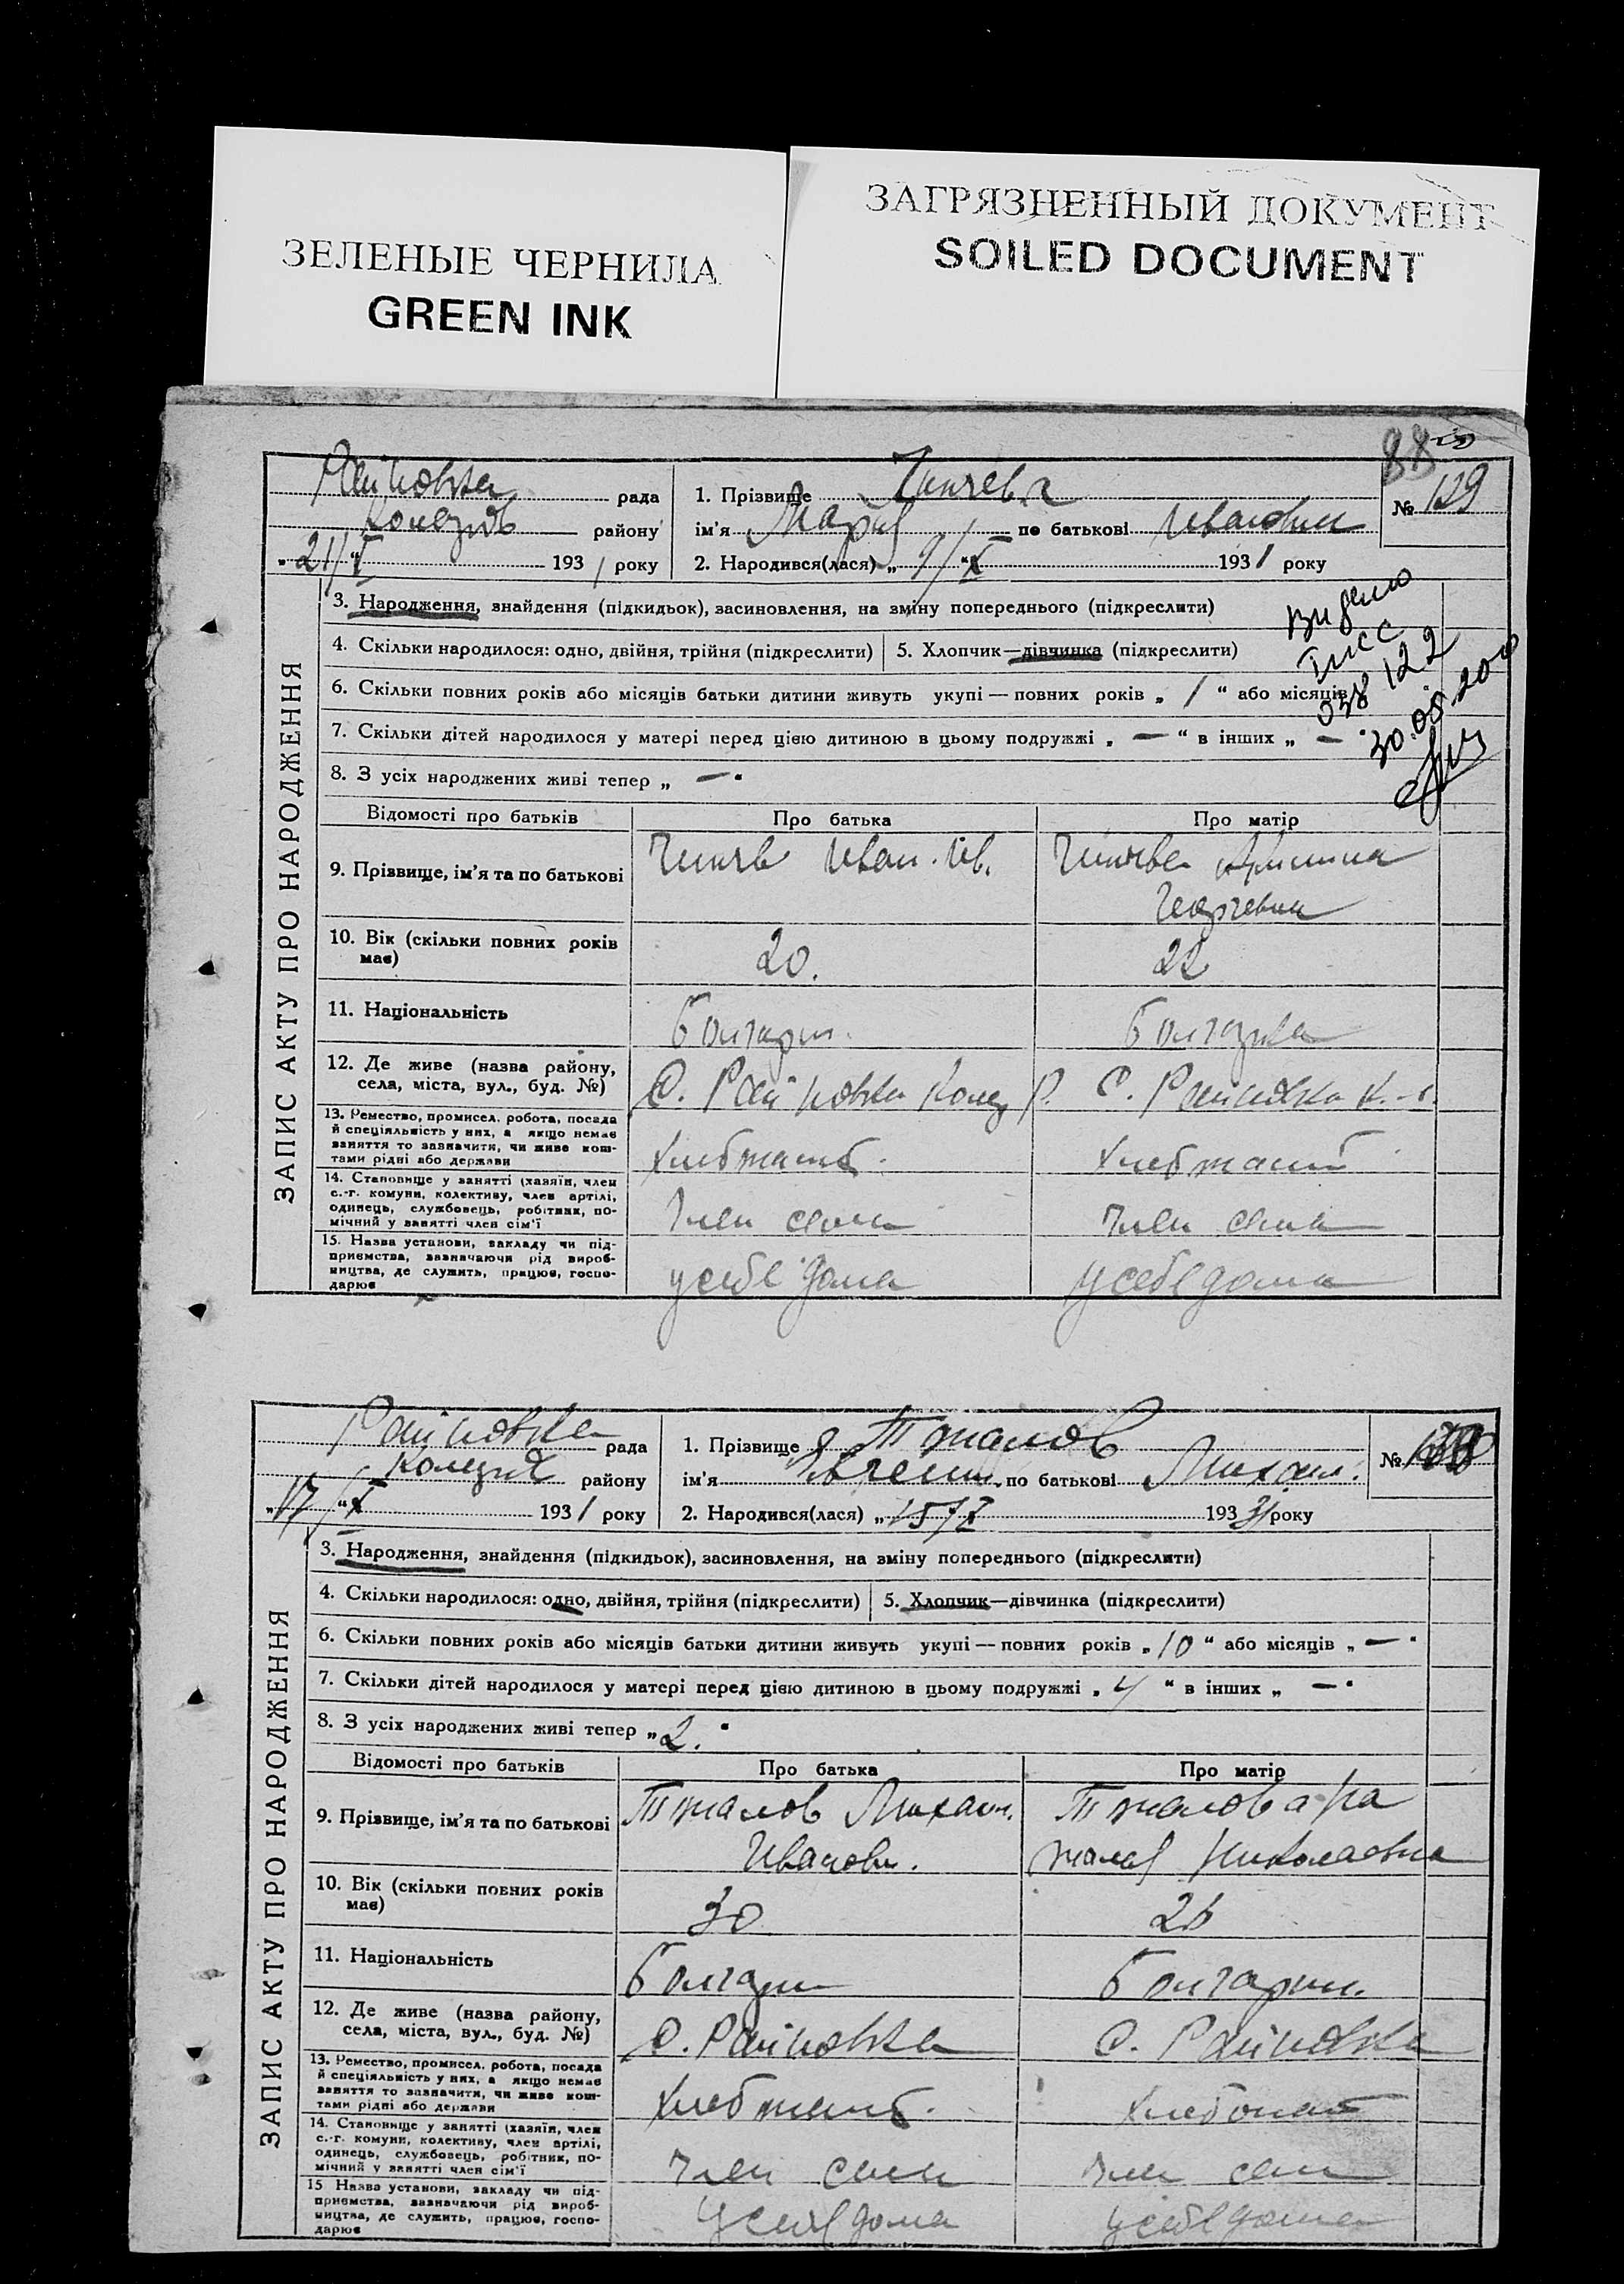 ЗЕЛЕНЫЕ ЧЕРНИЛА
GREEN INK
ЗАГРЯЗНЕННЫЙ ДОКУМЕНТ
SOILED DOCUMENT
88
ЗАПИС АКТУ ПРО НАРОДЖЕННЯ
Райновка рада
району
„21/X" 1931 року
1. Прізвище
ім'я Мария по батькові Ивановн
2. Народився(лася) „ /X" 1931 року
№ 129
3. Народження, знайдення (підкидьок), засиновлення, на зміну попереднього (підкреслити)
4. Скільки народилося: одно, двійня, трійня (підкреслити)
5. Хлопчик—дівчинка (підкреслити)
6. Скільки повних років або місяців батьки дитини живуть укупі — повних років „ 1 " або місяців
7. Скільки дітей народилося у матері перед цією дитиною в цьому подружжі „ — " в інших „ —
8. З усіх народжених живі тепер „ — "
038122
30.05.200
Відомості про батьків
Про батька
Про матір
9. Прізвище, ім'я та по батькові
Иван. Ив.
10. Вік (скільки повних років має)
20.
22
11. Національність
Болгарин.
Болгарка
12. Де живе (назва району, села, міста, вул., буд. №)
С. Райновка
С. Райновка К.-р.
13. Ремество, промисел, робота, посада й спеціяльність у них, а якщо немає заняття то зазначити, чи живе коштами рідні або держави
14. Становище у занятті (хазяїн, член с.-г. комуни, колективу, член артілі, одинець, службовець, робітник, помічний у занятті член сім'ї
Член семи
Член семи
15. Назва установи, закладу чи підприємства, зазначаючи рід виробництва, де служить, працює, господарює
у себе дома
у себе дома
ЗАПИС АКТУ ПРО НАРОДЖЕННЯ
Райновка рада
району
„17/X" 1931 року
1. Прізвище
ім'я Евгени по батькові Михаил.
2. Народився(лася) „15/X 19331 року
№
3. Народження, знайдення (підкидьок), засиновлення, на зміну попереднього (підкреслити)
4. Скільки народилося: одно, двійня, трійня (підкреслити)
5. Хлопчик—дівчинка (підкреслити)
6. Скільки повних років або місяців батьки дитини живуть укупі — повних років „ 10 " або місяців „ — "
7. Скільки дітей народилося у матері перед цією дитиною в цьому подружжі „ 4 " в інших „ — "
8. З усіх народжених живі тепер „ 2. "
Відомості про батьків
Про батька
Про матір
9. Прізвище, ім'я та по батькові
Михаил.
Иванови.
Николаовна
10. Вік (скільки повних років має)
30
26
11. Національність
Болгарин
Болгарин.
12. Де живе (назва району, села, міста, вул., буд. №)
С. Райновка
С. Райновка
13. Ремество, промисел, робота, посада й спеціяльність у них, а якщо немає заняття то зазначити, чи живе коштами рідні або держави
14. Становище у занятті (хазяїн, член с.-г. комуни, колективу, член артілі, одинець, службовець, робітник, помічний у занятті член сім'ї
Член семи
Член семи
15 Назва установи, закладу чи підприємства, зазначаючи рід виробництва, де служить, працює, господарює
У себе дома
у себе дома